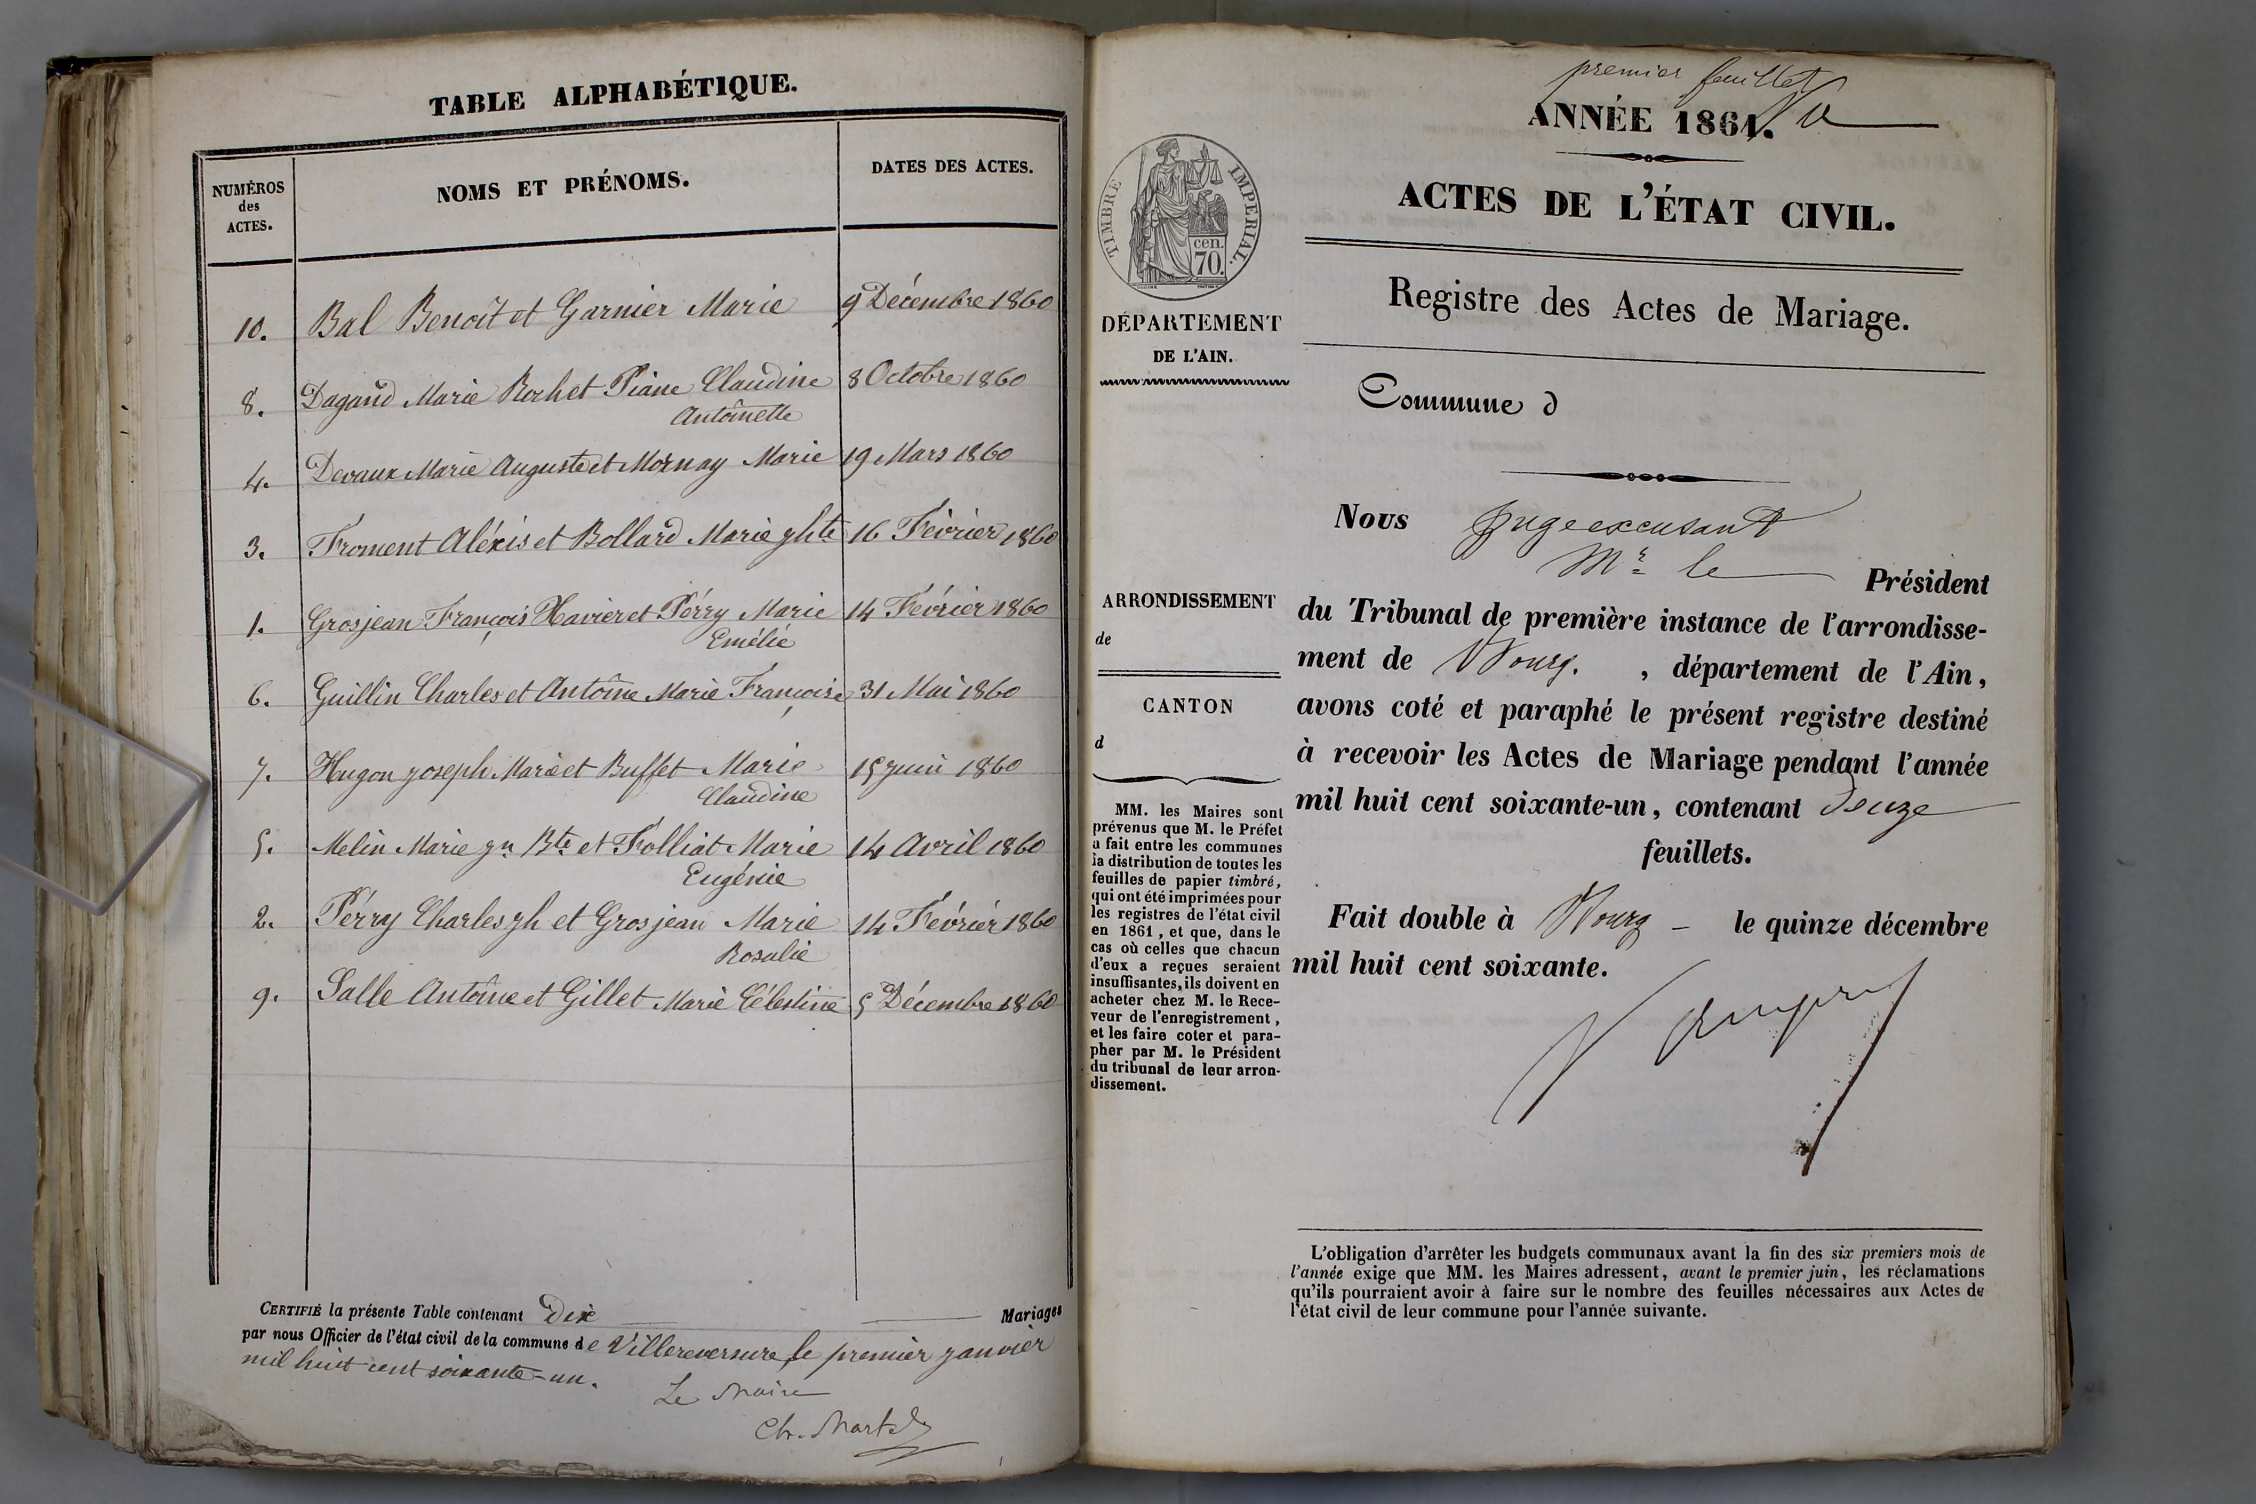 TABLE ALPHABÉTIQUE.
NUMÉROS des ACTES.
NOMS ET PRÉNOMS.
DATES DES ACTES.
10. Bal Benoît et Garnier Marie 9 Décembre 1860
8. Dagaud Marie Roch et Piane Claudine 8 Octobre 1860
Antoinette
4. Devaux Marie Auguste et Mornay Marie 19 Mars 1860
3. Froment Aléxis et Bollard Marie yhte 16 Février 1860
1. Grosjean François Xavier et Pérry Marie 14 Février 1860
Emélie
6. Guillin Charles et Antoine Marie Françoise 31 Mai 1860
7. Hugon Joseph Marie et Buffet Marie 15 Juin 1860
Claudine
5. Melin Marie Jn Bte et Folliat Marie 14 Avril 1860
Eugénie
2. Pérry Charles Jh et Grosjean Marie 14 Février 1860
Rosalie
9. Salle Antoine et Gillet Marie Célestine 5 Décembre 1860
CERTIFIÉ la présente Table contenant Dix Mariages
par nous Officier de l'état civil de la commune de Villereversure, le premier janvier
mil huit cent soixante-un.
Le Maire
Ch. Martel
premier feuillet
ANNÉE 1861.
ACTES DE L'ÉTAT CIVIL.
Registre des Actes de Mariage.
TIMBRE IMPERIAL.
cen.
70.
DÉPARTEMENT
DE L'AIN.
Commune d
Nous Juge excusant
Mr le Président
du Tribunal de première instance de l'arrondisse-
ment de Bourg. , département de l'Ain,
avons coté et paraphé le présent registre destiné
à recevoir les Actes de Mariage pendant l'année
mil huit cent soixante-un, contenant douze
feuillets.
Fait double à Bourg — le quinze décembre
mil huit cent soixante.
ARRONDISSEMENT
de
CANTON
d
MM. les Maires sont
prévenus que M. le Préfet
a fait entre les communes
la distribution de toutes les
feuilles de papier timbré,
qui ont été imprimées pour
les registres de l'état civil
en 1861, et que, dans le
cas où celles que chacun
d'eux a reçues seraient
insuffisantes, ils doivent en
acheter chez M. le Rece-
veur de l'enregistrement,
et les faire coter et para-
pher par M. le Président
du tribunal de leur arron-
dissement.
L'obligation d'arrêter les budgets communaux avant la fin des six premiers mois de
l'année exige que MM. les Maires adressent, avant le premier juin, les réclamations
qu'ils pourraient avoir à faire sur le nombre des feuilles nécessaires aux Actes de
l'état civil de leur commune pour l'année suivante.